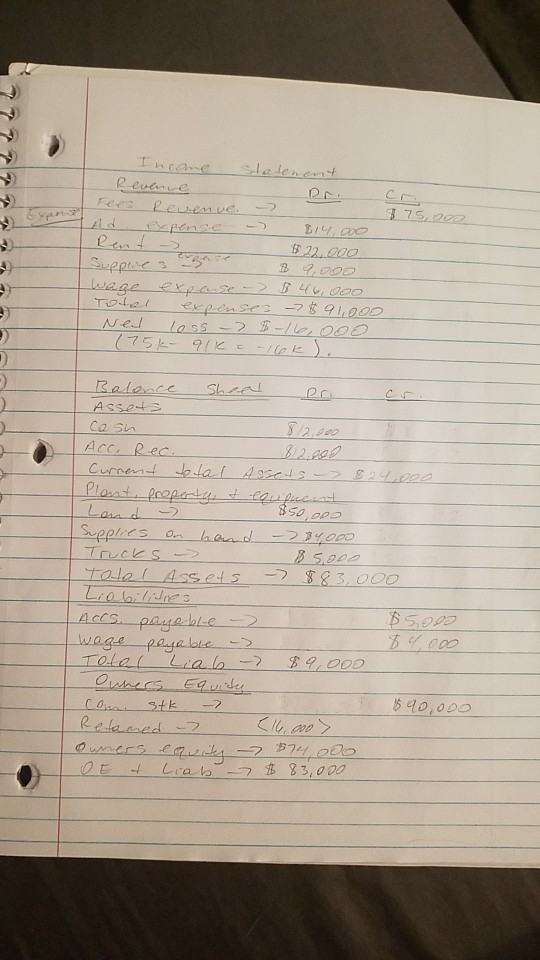 Income Statement
Revenue Dr. Cr.
Fees Revenue -> $75,000
Expense Ad. expense -> $14,000
Rent -> $22,000
Supplies expense -> $ 9,000
Wage expense -> $ 46,000
Total expenses -> $ 91,000
Net loss -> $-16,000
(75k - 91k = -16k).
Balance Sheet Dr. Cr.
Assets
Cash $12,000
Acc. Rec. $12,000
Current total Assets -> $24,000
Plant, property, + equipment
Land -> $50,000
Supplies on hand -> $4,000
Trucks -> $ 5,000
Total Assets -> $83,000
Liabilities
Accs. payable -> $5,000
Wage payable -> $4,000
Total Liab -> $9,000
Owners Equity
Com. stk -> $90,000
Retained -> <16,000>
Owners equity -> $74,000
OE + Liab -> $ 83,000